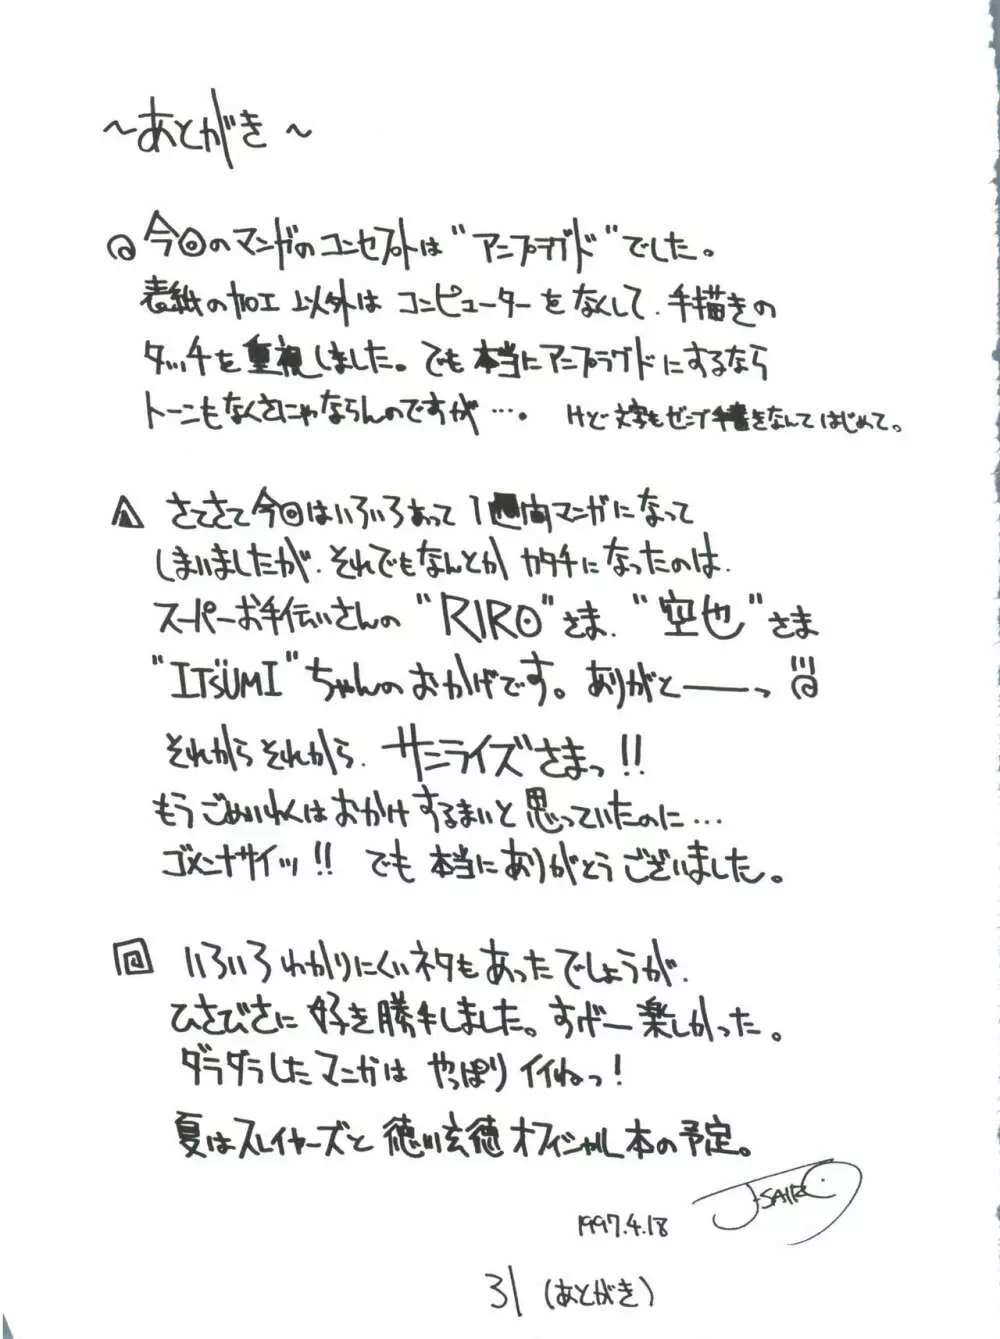 ～あとがき～
@今回のマンガのコンセプトは"アンプラグド"でした。
表紙の加工以外はコンピューターをなくして、手描きの
タッチを重視しました。でも本当にアンプラグドにするなら
トーンもなくさにゃならんのですが…。 けど文字もゼンブ手書きなんてはじめて。
さてさて今回はいろいろあって1週間マンガになって
しまいましたが、それでもなんとかカタチになったのは、
スーパーお手伝いさんの"RIRO"さま、"空也"さま
"ITSUMI"ちゃんのおかげです。ありがと――っ!!!@
それからそれから、サンライズさまっ!!
もうごめいわくはおかけするまいと思っていたのに…
ゴメンナサイッ!! でも本当にありがとうございました。
いろいろわかりにくいネタもあったでしょうが、
ひさびさに好き勝手しました。すげー楽しかった。
ダラダラしたマンガはやっぱりイイねっ!
夏はスレイヤーズと徳川玄徳オフィシャル本の予定。
1997.4.18
31(あとがき)